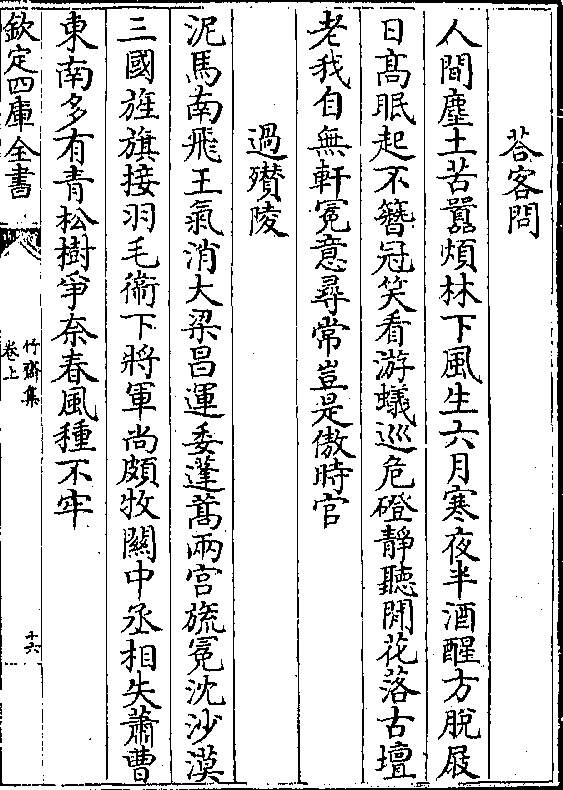 荅客問
人間塵土苦囂煩林下風生六月寒夜半酒醒方脫屐
日髙眠起不簪冠笑看游蟻巡危磴靜聽閒花落古壇
老我自無軒冕意尋常豈是傲時官
過攢陵
泥馬南飛王氣消大梁昌運委蓬蒿兩宫旒冕沈沙漠
三國旌旗接羽毛衛下將軍尚頗牧關中丞相失蕭曹
東南多有青松樹爭奈春風種不牢
欽定四庫全書
竹齋集
卷上
十六